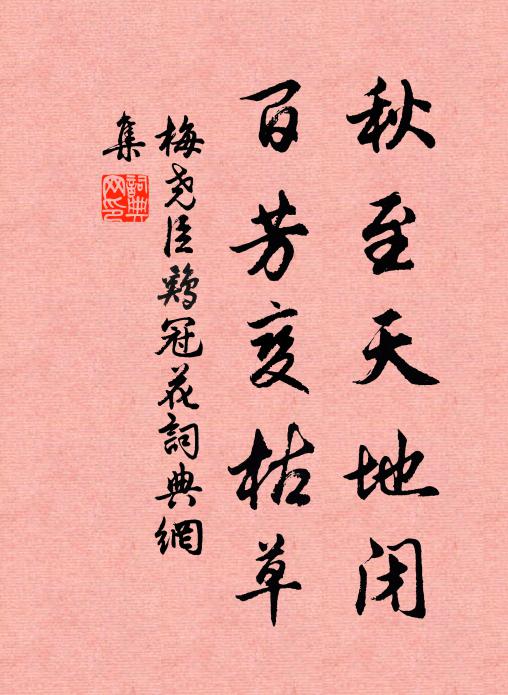 秋至天地闭
百芳变枯草
梅尧臣鸡冠花词典網
集
詞典
网印